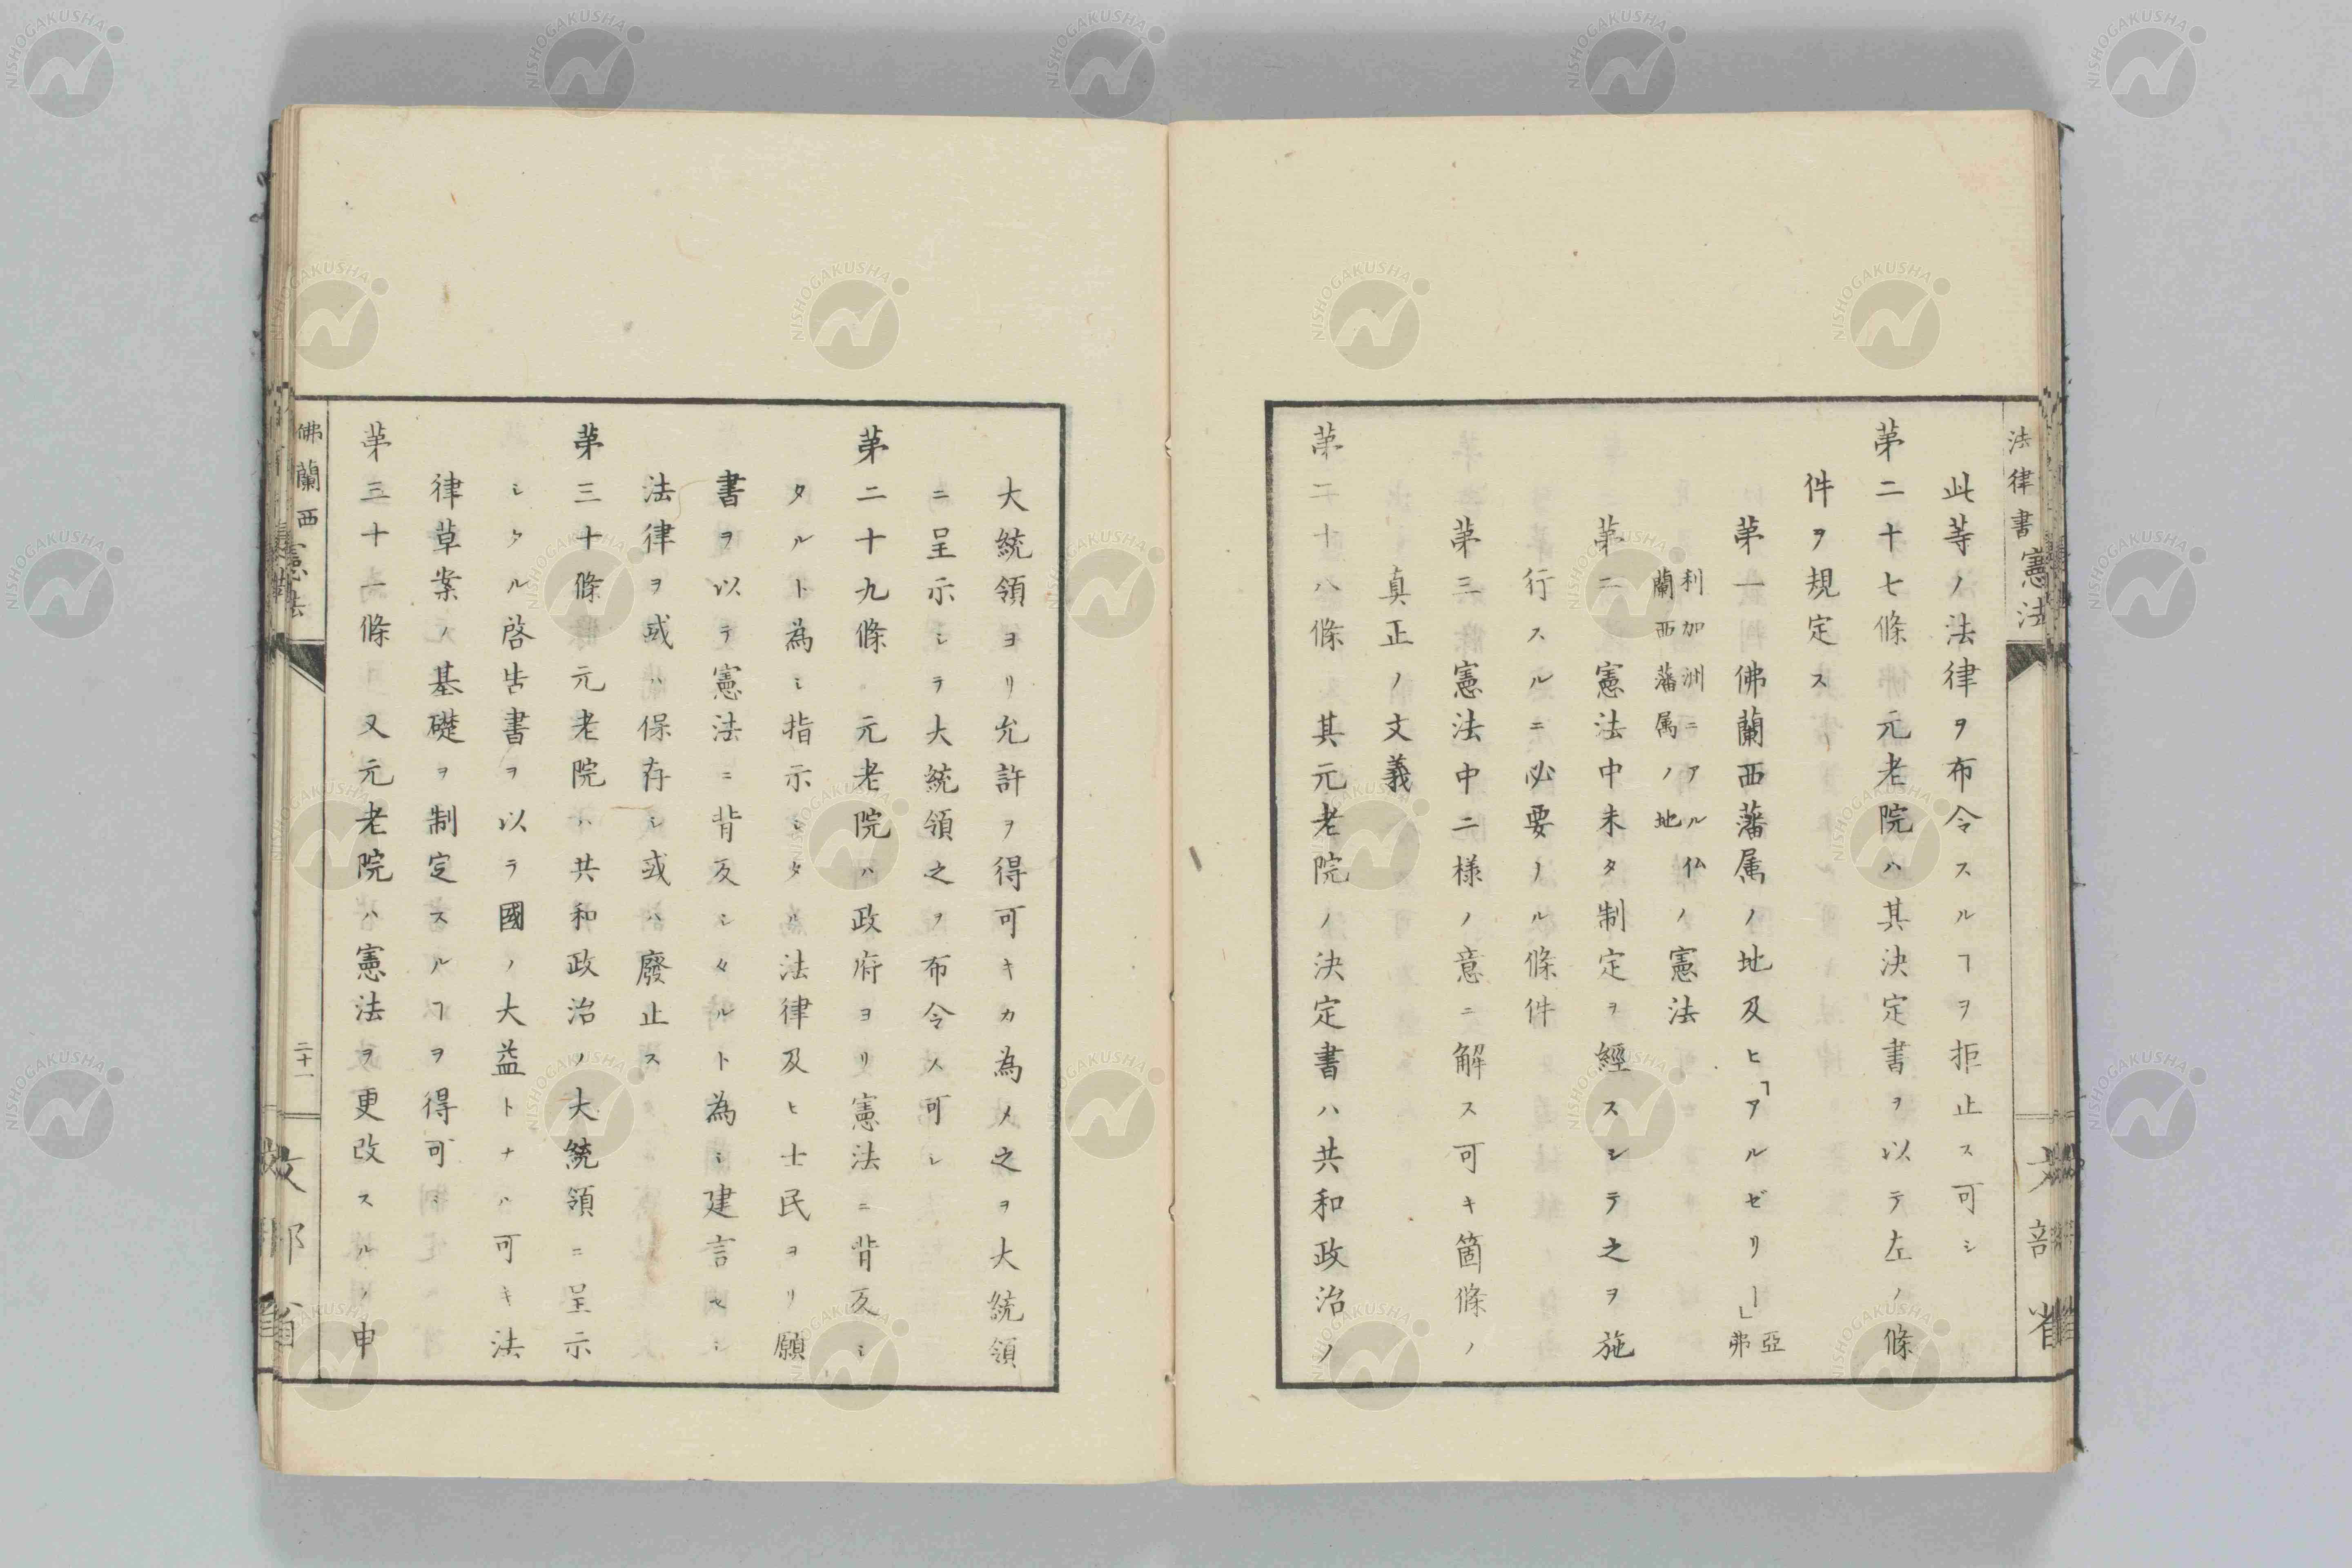 法律書憲法
此等ノ法律ヲ布令スルヿヲ拒止ス可シ
苐二十七條 元老院ハ其決定書ヲ以テ左ノ條
件ヲ規定ス
苐一 佛蘭西藩属ノ地及ヒ「アルゼリー」亞弗
利加洲ニアル仏
蘭西藩属ノ地ノ憲法
苐二 憲法中未タ制定ヲ經スシテ之ヲ施
行スルニ必要ノル條件
苐三 憲法中二様ノ意ニ解ス可キ箇條ノ
真正ノ文義
苐二十八條 其元老院ノ決定書ハ共和政治ノ
文部省
大統領ヨリ允許ヲ得可キカ為メ之ヲ大統領
ニ呈示シテ大統領之ヲ布令メ可シ
苐二十九條 元老院ハ政府ヨリ憲法ニ背反シ
タルト為シ指示シタル法律及ヒ士民ヨリ願
書ヲ以テ憲法ニ背反シタルト為シ建言セシ
法律ヲ或ハ保存シ或ハ廢止ス
苐三十條 元老院ハ共和政治ノ大統領ニ呈示
シタル啓告書ヲ以テ國ノ大益トナル可キ法
律草案ノ基礎ヲ制定スルヿヲ得可シ
苐三十一條 又元老院ハ憲法ヲ更改スルノ申
佛蘭西憲法
二十一
文部省
NISHOGAKUSHA